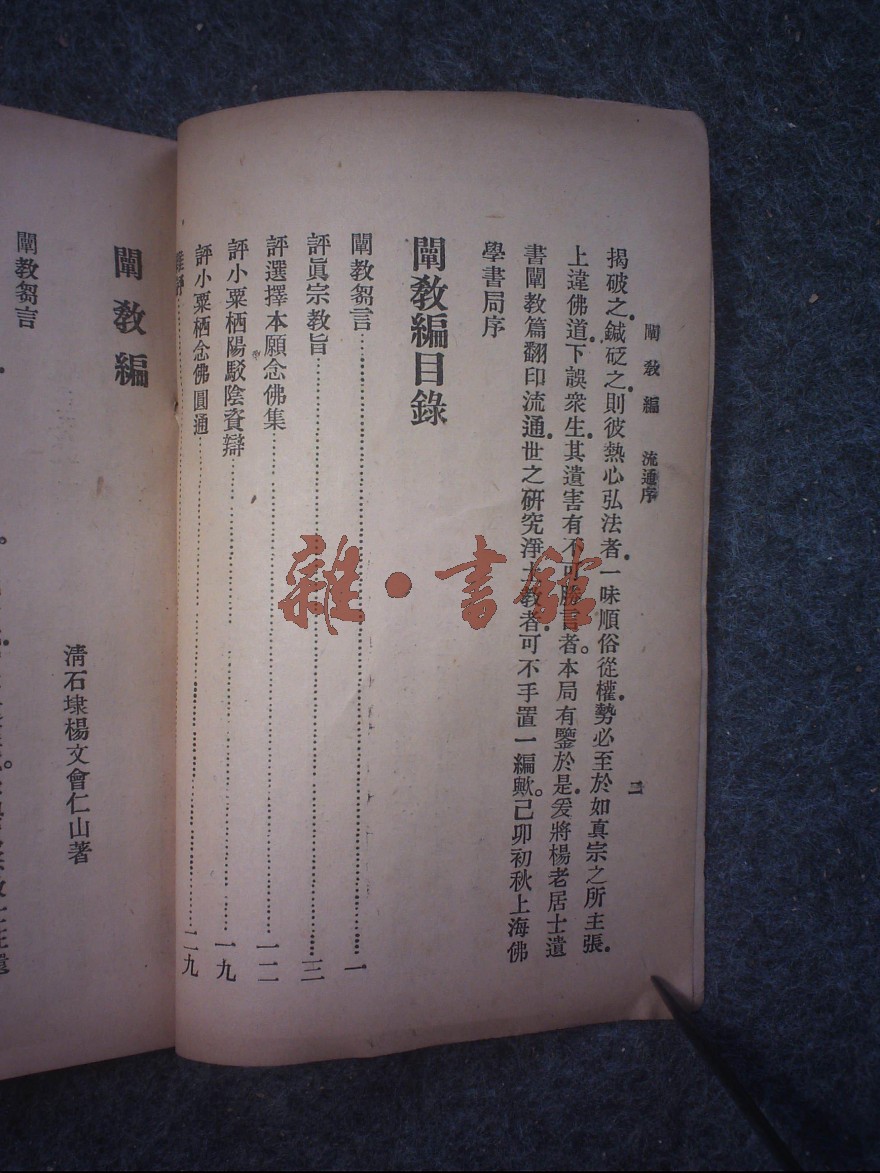 闡教編　流通序
二
揭破之鍼砭之則彼熱心弘法者一味順俗從權勢必至於如真宗之所主張
上違佛道下誤衆生其遺害有不可勝言者。本局有鑒於是爰將楊老居士遺
書闡教篇翻印流通世之研究淨土教者可不手置一編歟。己卯初秋上海佛
學書局序
闡教編目錄
闡教芻言……一
評眞宗教旨……三
評選擇本願念佛集……一二
評小粟栖陽駁陰資辯……一九
評小粟栖念佛圓通……二九
闡教編
清石埭楊文會仁山著
闡教芻言
雜·書館